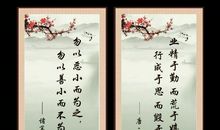 业精于勤而荒于嬉
行成于思而毁于
唐
勿以恶小而为之,
勿以善小而不为